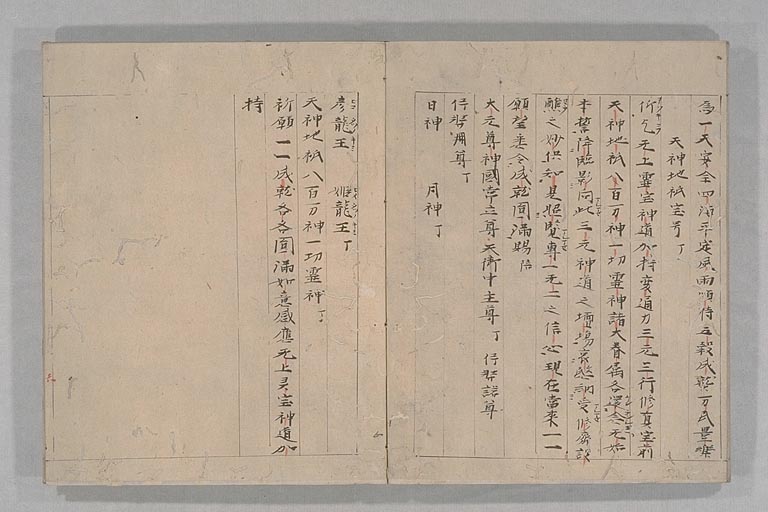 為一天安全四海平定風雨順侍五穀成熟万民豊樂
天神地祇宝号丁
仰乞无上霊宝神道加持変通力三元三行修真宝前
天神地祇八百万神一切霊神諸大眷属各還念无始
本誓降臨影向此三元神道之壇場哀愍納受修斎設
醮之妙供知見照覧專一无二之信心現在當来一一
願望悉令成就圓滿賜
大元尊神國常立尊天御中主尊丁伊弉諾尊
伊弉冊尊丁
日神 月神丁
彦龍王 姫龍王丁
天神地祇八百万神一切霊神丁
祈願一一成就各各圓滿如意感應无上灵宝神道加
持